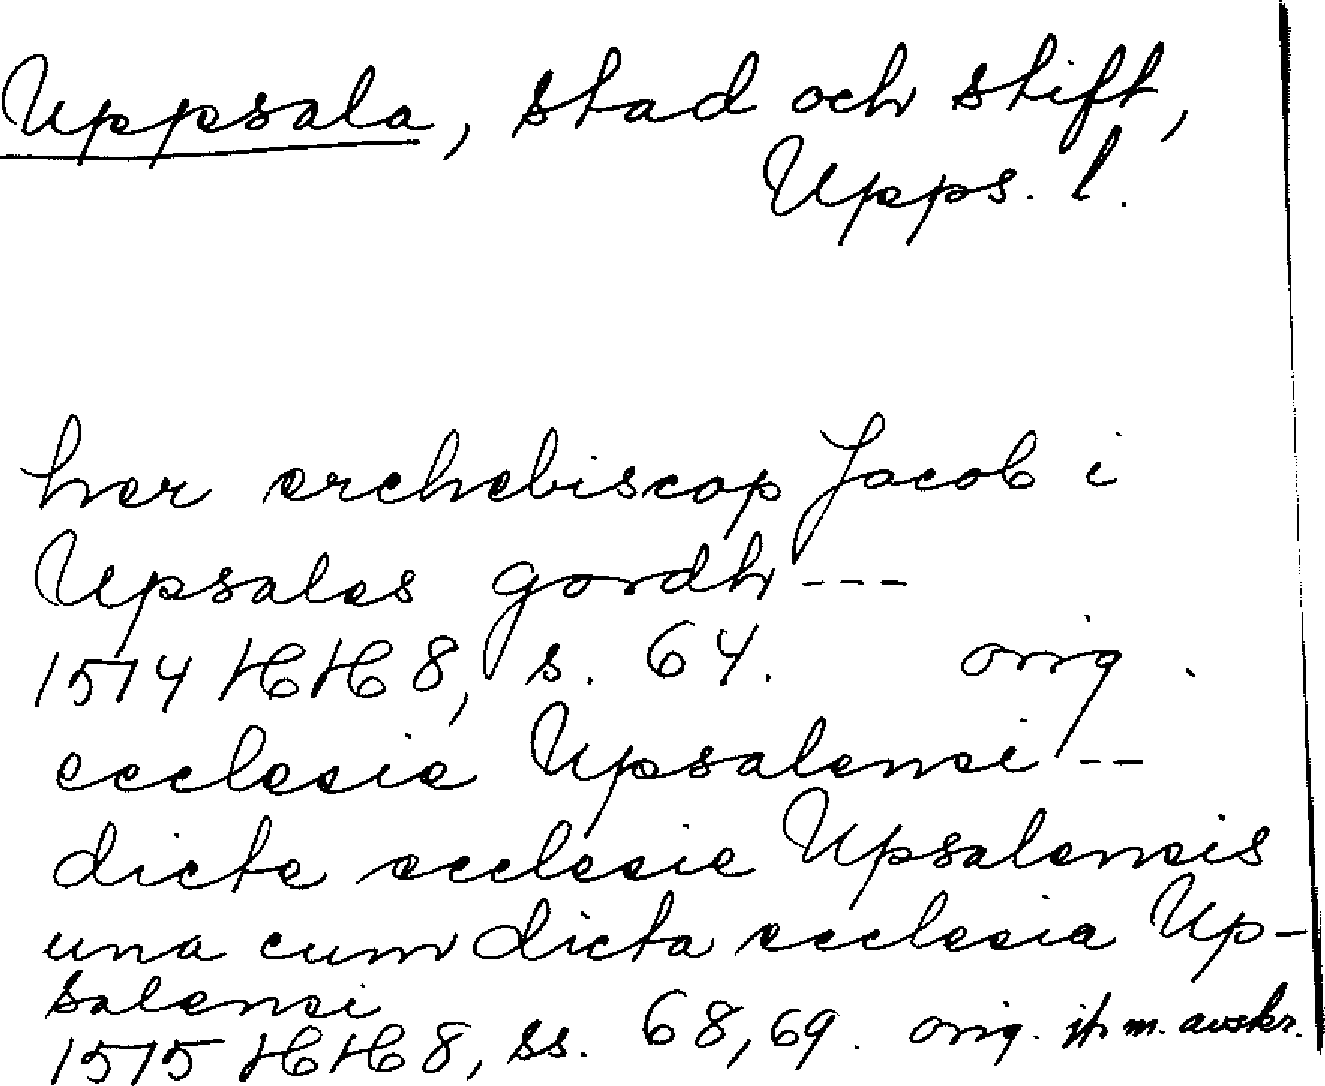 Uppsala, stad och stift,
Upps. l.
her erchebiscop Jacob i
Upsales gordh ---
1514 HH 8, s. 64. orig.
ecclesie Upsalensi --
dicte ecclesie Upsalensis
una cum dicta ecclesia Up-
salensi
1515 HH 8, ss. 68, 69. orig. jf. m. avskr.